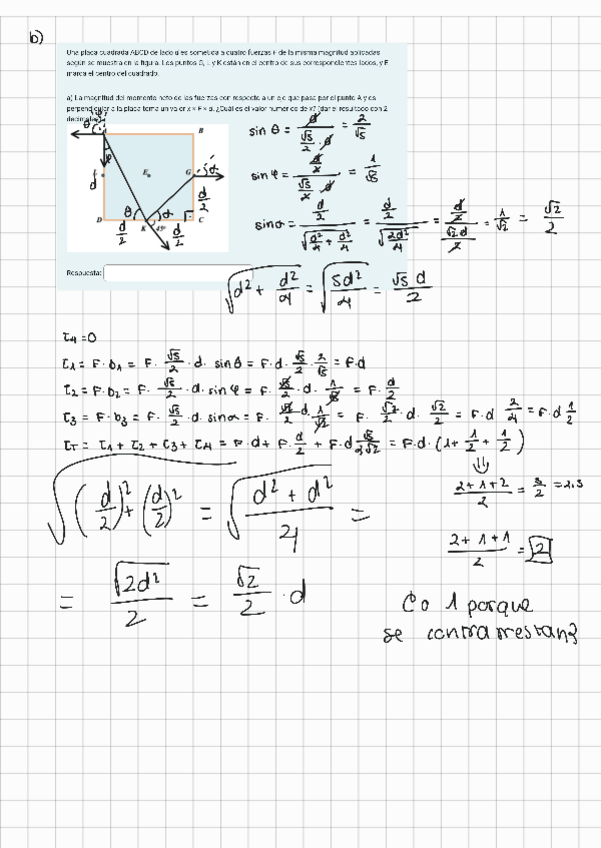 b)
Una placa cuadrada ABCD de lado d es sometida a cuatro fuerzas F de la misma magnitud aplicadas
según se muestra en la figura. Los puntos G, I, y K están en el centro de sus correspondientes lados, y E
marca el centro del cuadrado.
a) La magnitud del momento neto de las fuerzas con respecto a un eje que pasa por el punto A y es
perpendicular a la placa toma un valor x × F × d. ¿Cuál es el valor numérico de x? (dar el resultado con 2
decimales)
θ φ B
d E G α d/2
D θ α C
d/2 K 45º d/2
sin θ = d / (√5/2 · d) = 2/√5
sin φ = (d/2) / (√5/2 · d) = 1/√5
sin α = (d/2) / √(d²/4 + d²/4) = (d/2) / √(2d²/4) = (d/2) / (√2 d/2) = 1/√2 = √2/2
Respuesta:
√(d² + d²/4) = √(5d²/4) = √5 d/2
τ4 = 0
τ1 = F · b1 = F · √5/2 · d · sin θ = F · d · √5/2 · 2/√5 = F · d
τ2 = F · b2 = F · √5/2 · d · sin φ = F · √5/2 · d · 1/√5 = F · d/2
τ3 = F · b3 = F · √5/2 · d · sin α = F · d · 1/√2 = F · √2/2 · d · √2/2 = F · d 2/4 = F · d 1/2
τT = τ1 + τ2 + τ3 + τ4 = F · d + F · d/2 + F · d √5/2√2 = F · d · (1 + 1/2 + 1/2)
⇓
√((d/2)² + (d/2)²) = √((d² + d²)/4) =
(2 + 1 + 2)/2 =
(2 + 1 + 1)/2 = 2
= √2d²/2 = √2/2 · d
¿o 1 porque
se contrarrestan?